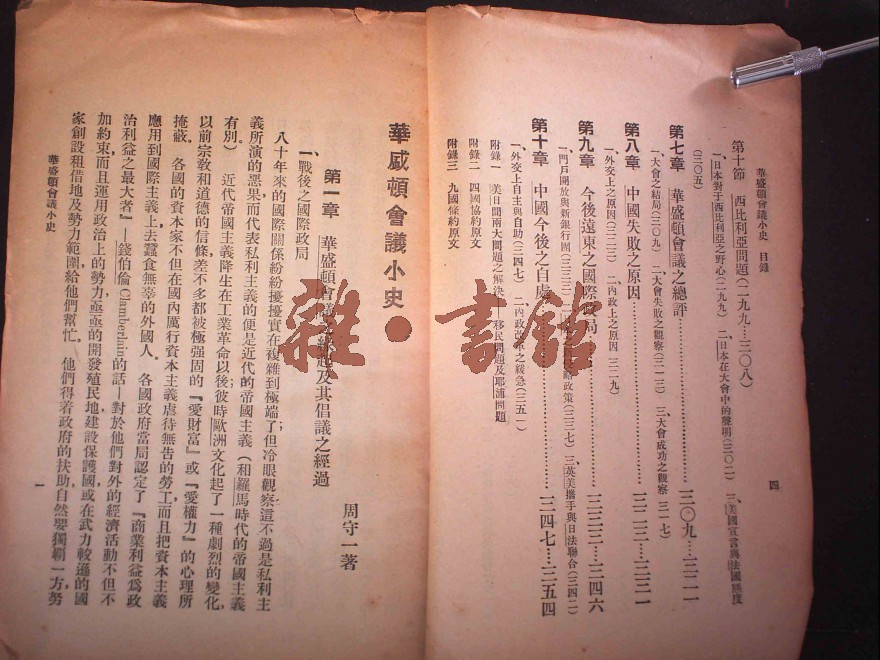 華盛頓會議小史　目錄
四
第十節　西比利亞問題(二九九…三〇八)
一、日本對于西比利亞之野心(二九九)　二、日本在大會中的聲明(三〇二)　三、美國宣言與法國態度
(三〇五)
第七章　華盛頓會議之總評…三〇九…三二一
一、大會之結局(三〇九)　二、大會失敗之觀察(三一三)　三、大會成功之觀察
第八章　中國失敗之原因…三二二…三三一
一、外交上之原因(三二二)　二、內政上之原因
第九章　今後遠東之國際政局…三三三…三四六
一、門戶開放與新銀行團(三三三)　政策(三三七)　三、英美攜手與日法聯合(三四二)
第十章　中國今後之自處…三四七…三五四
一、外交上自主與自助(三四七)　二、內政改革之緩急(三五一)
附錄一　美日間兩大問題之解決—移民問題及耶浦問題
附錄二　四國協約原文
附錄三　九國條約原文
華盛頓會議小史
周守一著
第一章　華盛頓會議之緣起及其倡議之經過
一、戰後之國際政局
八十年來的國際關係紛紛擾擾實在複雜到極端了;但冷眼觀察這不過是私利主
義所演的惡果而代表私利主義的便是近代的帝國主義(和羅馬時代的帝國主義
有別。)　近代帝國主義降生在工業革命以後;彼時歐洲文化起了一種劇烈的變化,
以前宗教和道德的信條差不多都被極强固的『愛財富』或『愛權力』的心理所
掩蔽。　各國的資本家不但在國內厲行資本主義虐待無告的勞工而且把資本主義
應用到國際主義上去蠶食無辜的外國人。　各國政府當局認定了『商業利益爲政
治利益之最大者』—錢伯倫Chamberlain的話—對於他們對外的經濟活動不但不
加約束而且運用政治上的勢力,亟亟的開發殖民地建設保護國或在武力較遜的國
家創設租借地及勢力範圍給他們幫忙。　他們得着政府的扶助自然要獨覇一方,勞
華盛頓會議小史
一
雜•書館